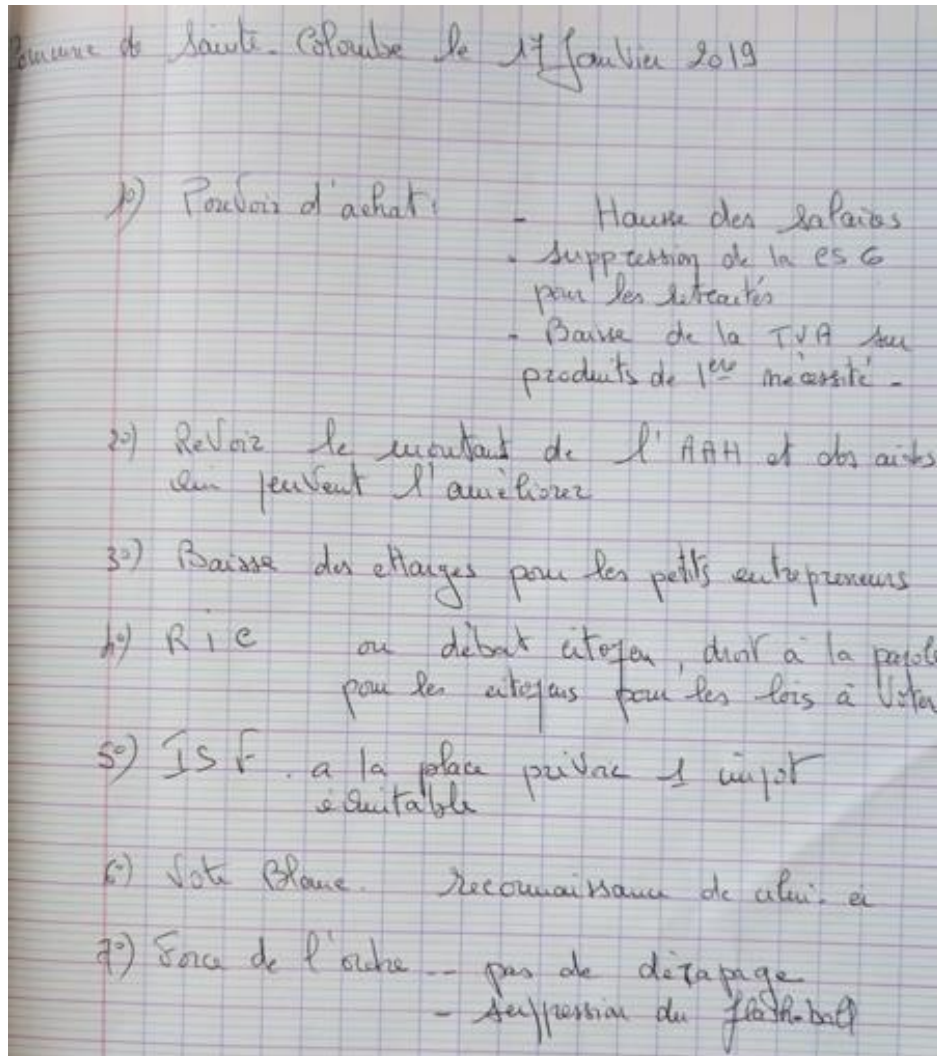 Commune de Sainte-Colombe le 17 Janvier 2019
1°) Pouvoir d'achat: - Hausse des salaires
- suppression de la CSG
pour les retraités
- Baisse de la TVA sur
produits de 1ère nécessité -
2°) Revoir le montant de l'AAH et des aides
qui peuvent l'améliorer
3°) Baisse des charges pour les petits entrepreneurs
4°) RIC ou débat citoyen, droit à la parole
pour les citoyens pour les lois à voter
5°) ISF. a la place prévoir 1 impot
équitable
6°) Vote Blanc. reconnaissance de celui-ci
7°) Force de l'ordre -- pas de dérapage
- suppression du flash-ball